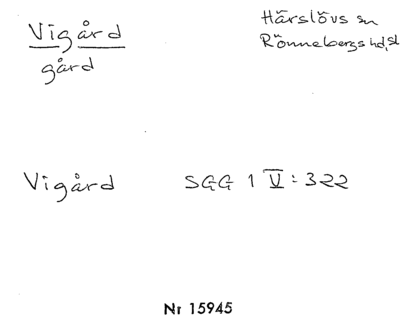 Vigård
gård
Härslövs sn
Rönnebergs hd, sk
Vigård SGG 1 V: 322
Nr 15945